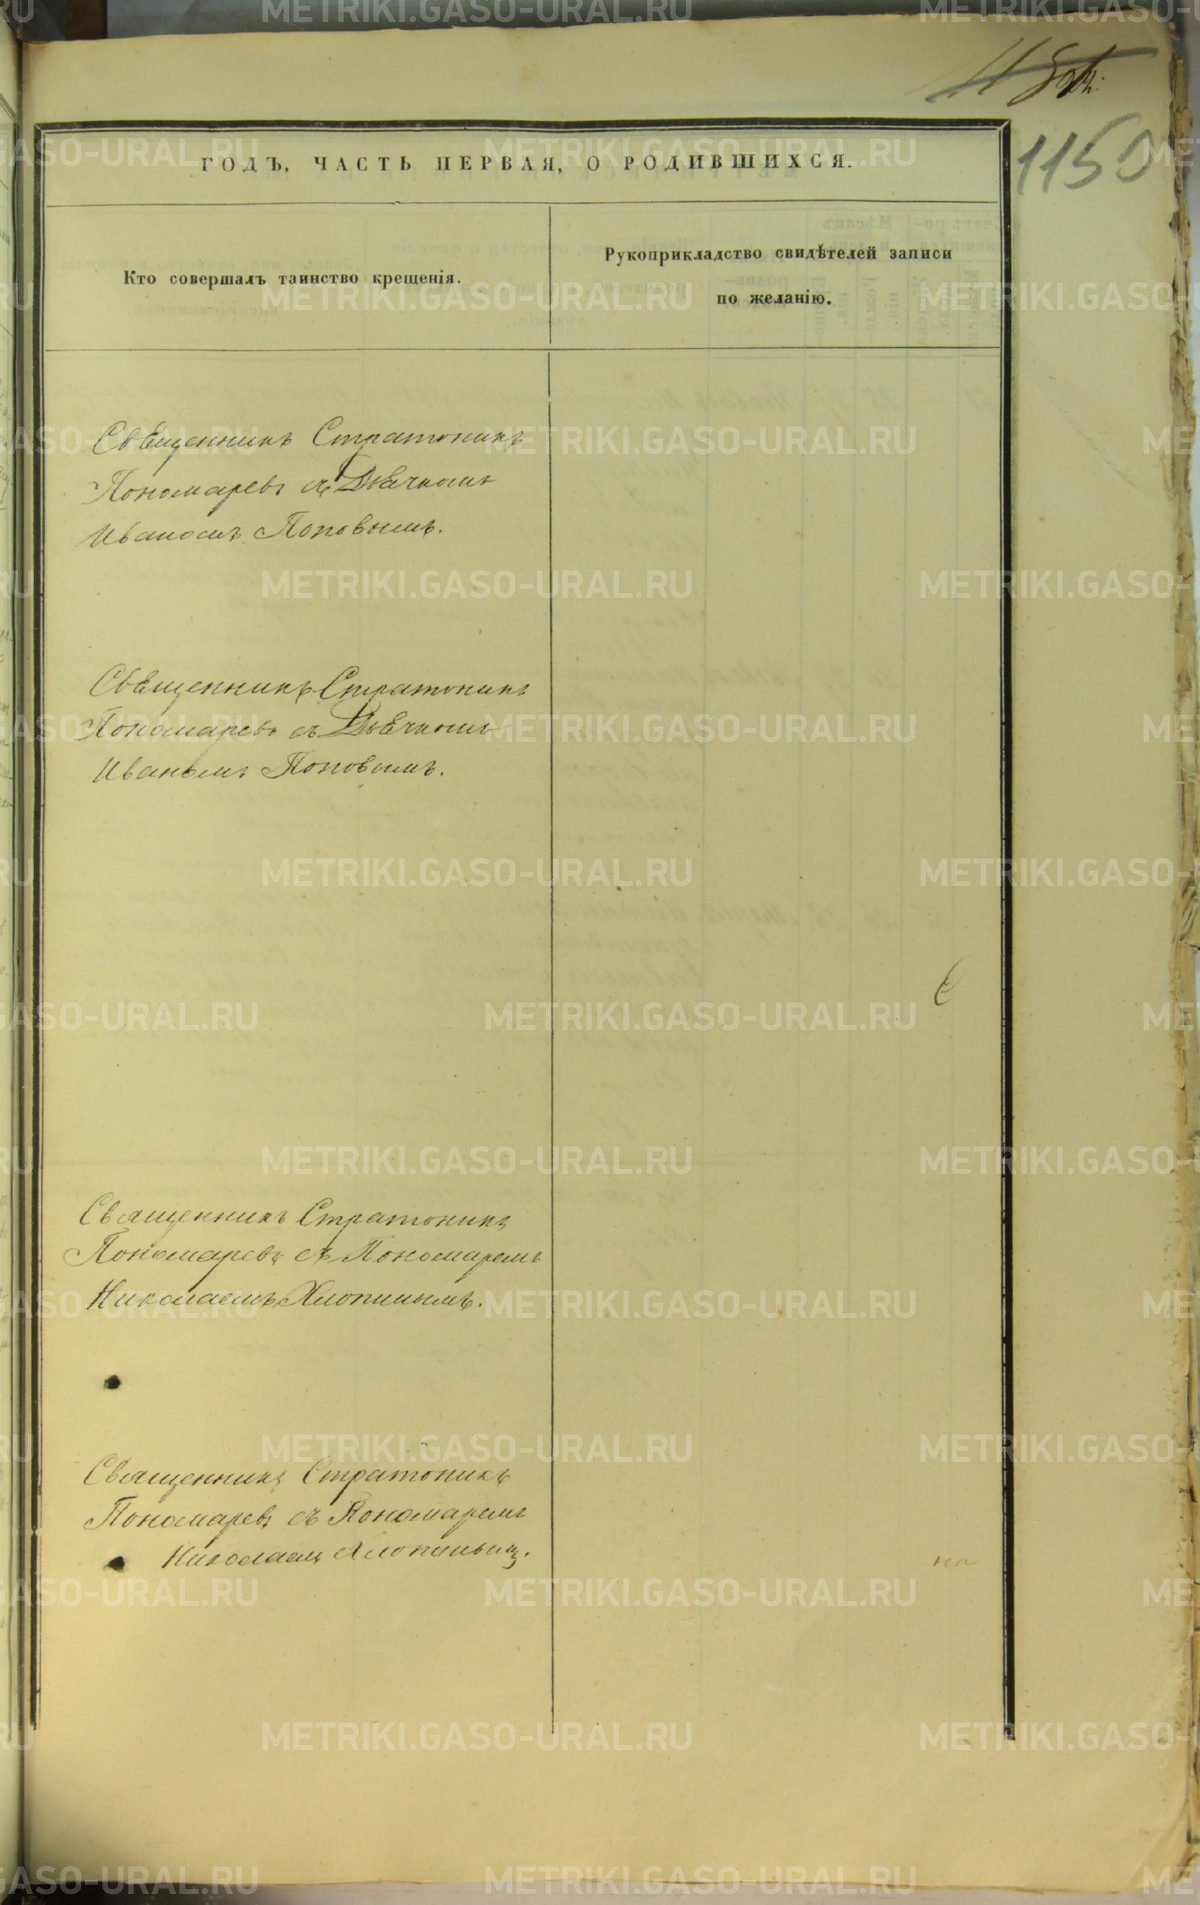 1150
ГОДЪ, ЧАСТЬ ПЕРВАЯ, О РОДИВШИХСЯ.
Кто совершалъ таинство крещенія.
Рукоприкладство свидѣтелей записи
по желанію.
Священникъ Стратоникъ
Пономаревъ съ Дьячкомъ
Иваномъ Поповымъ.
Священникъ Стратоникъ
Пономаревъ съ Дьячкомъ
Иваномъ Поповымъ.
Священникъ Стратоникъ
Пономаревъ съ Пономаремъ
Николаемъ Хлопинымъ.
Священникъ Стратоникъ
Пономаревъ съ Пономаремъ
Николаемъ Хлопинымъ.
METRIKI.GASO-URAL.RU